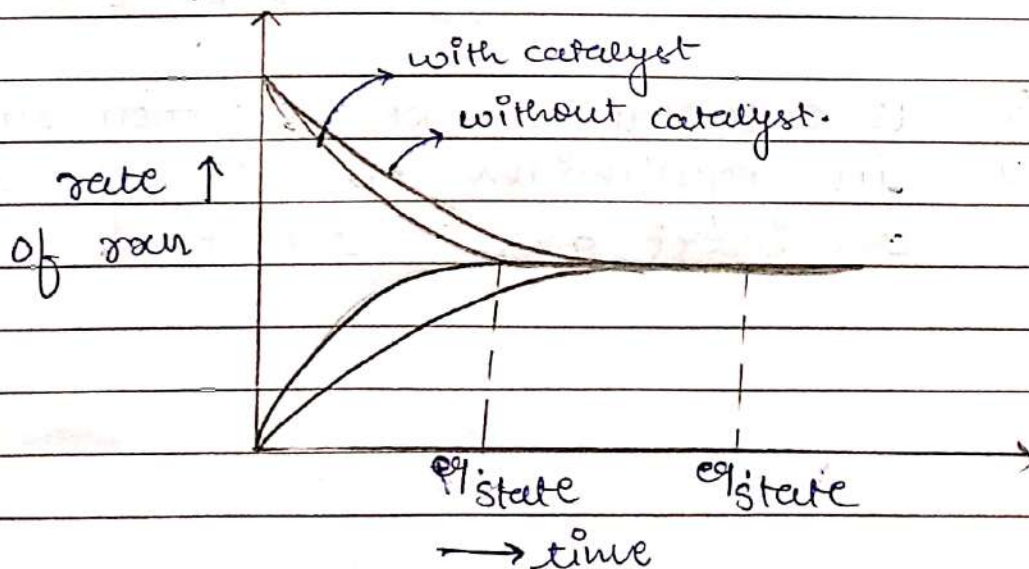 with catalyst
without catalyst.
rate ↑
of rxn
eq state
eq state
→ time